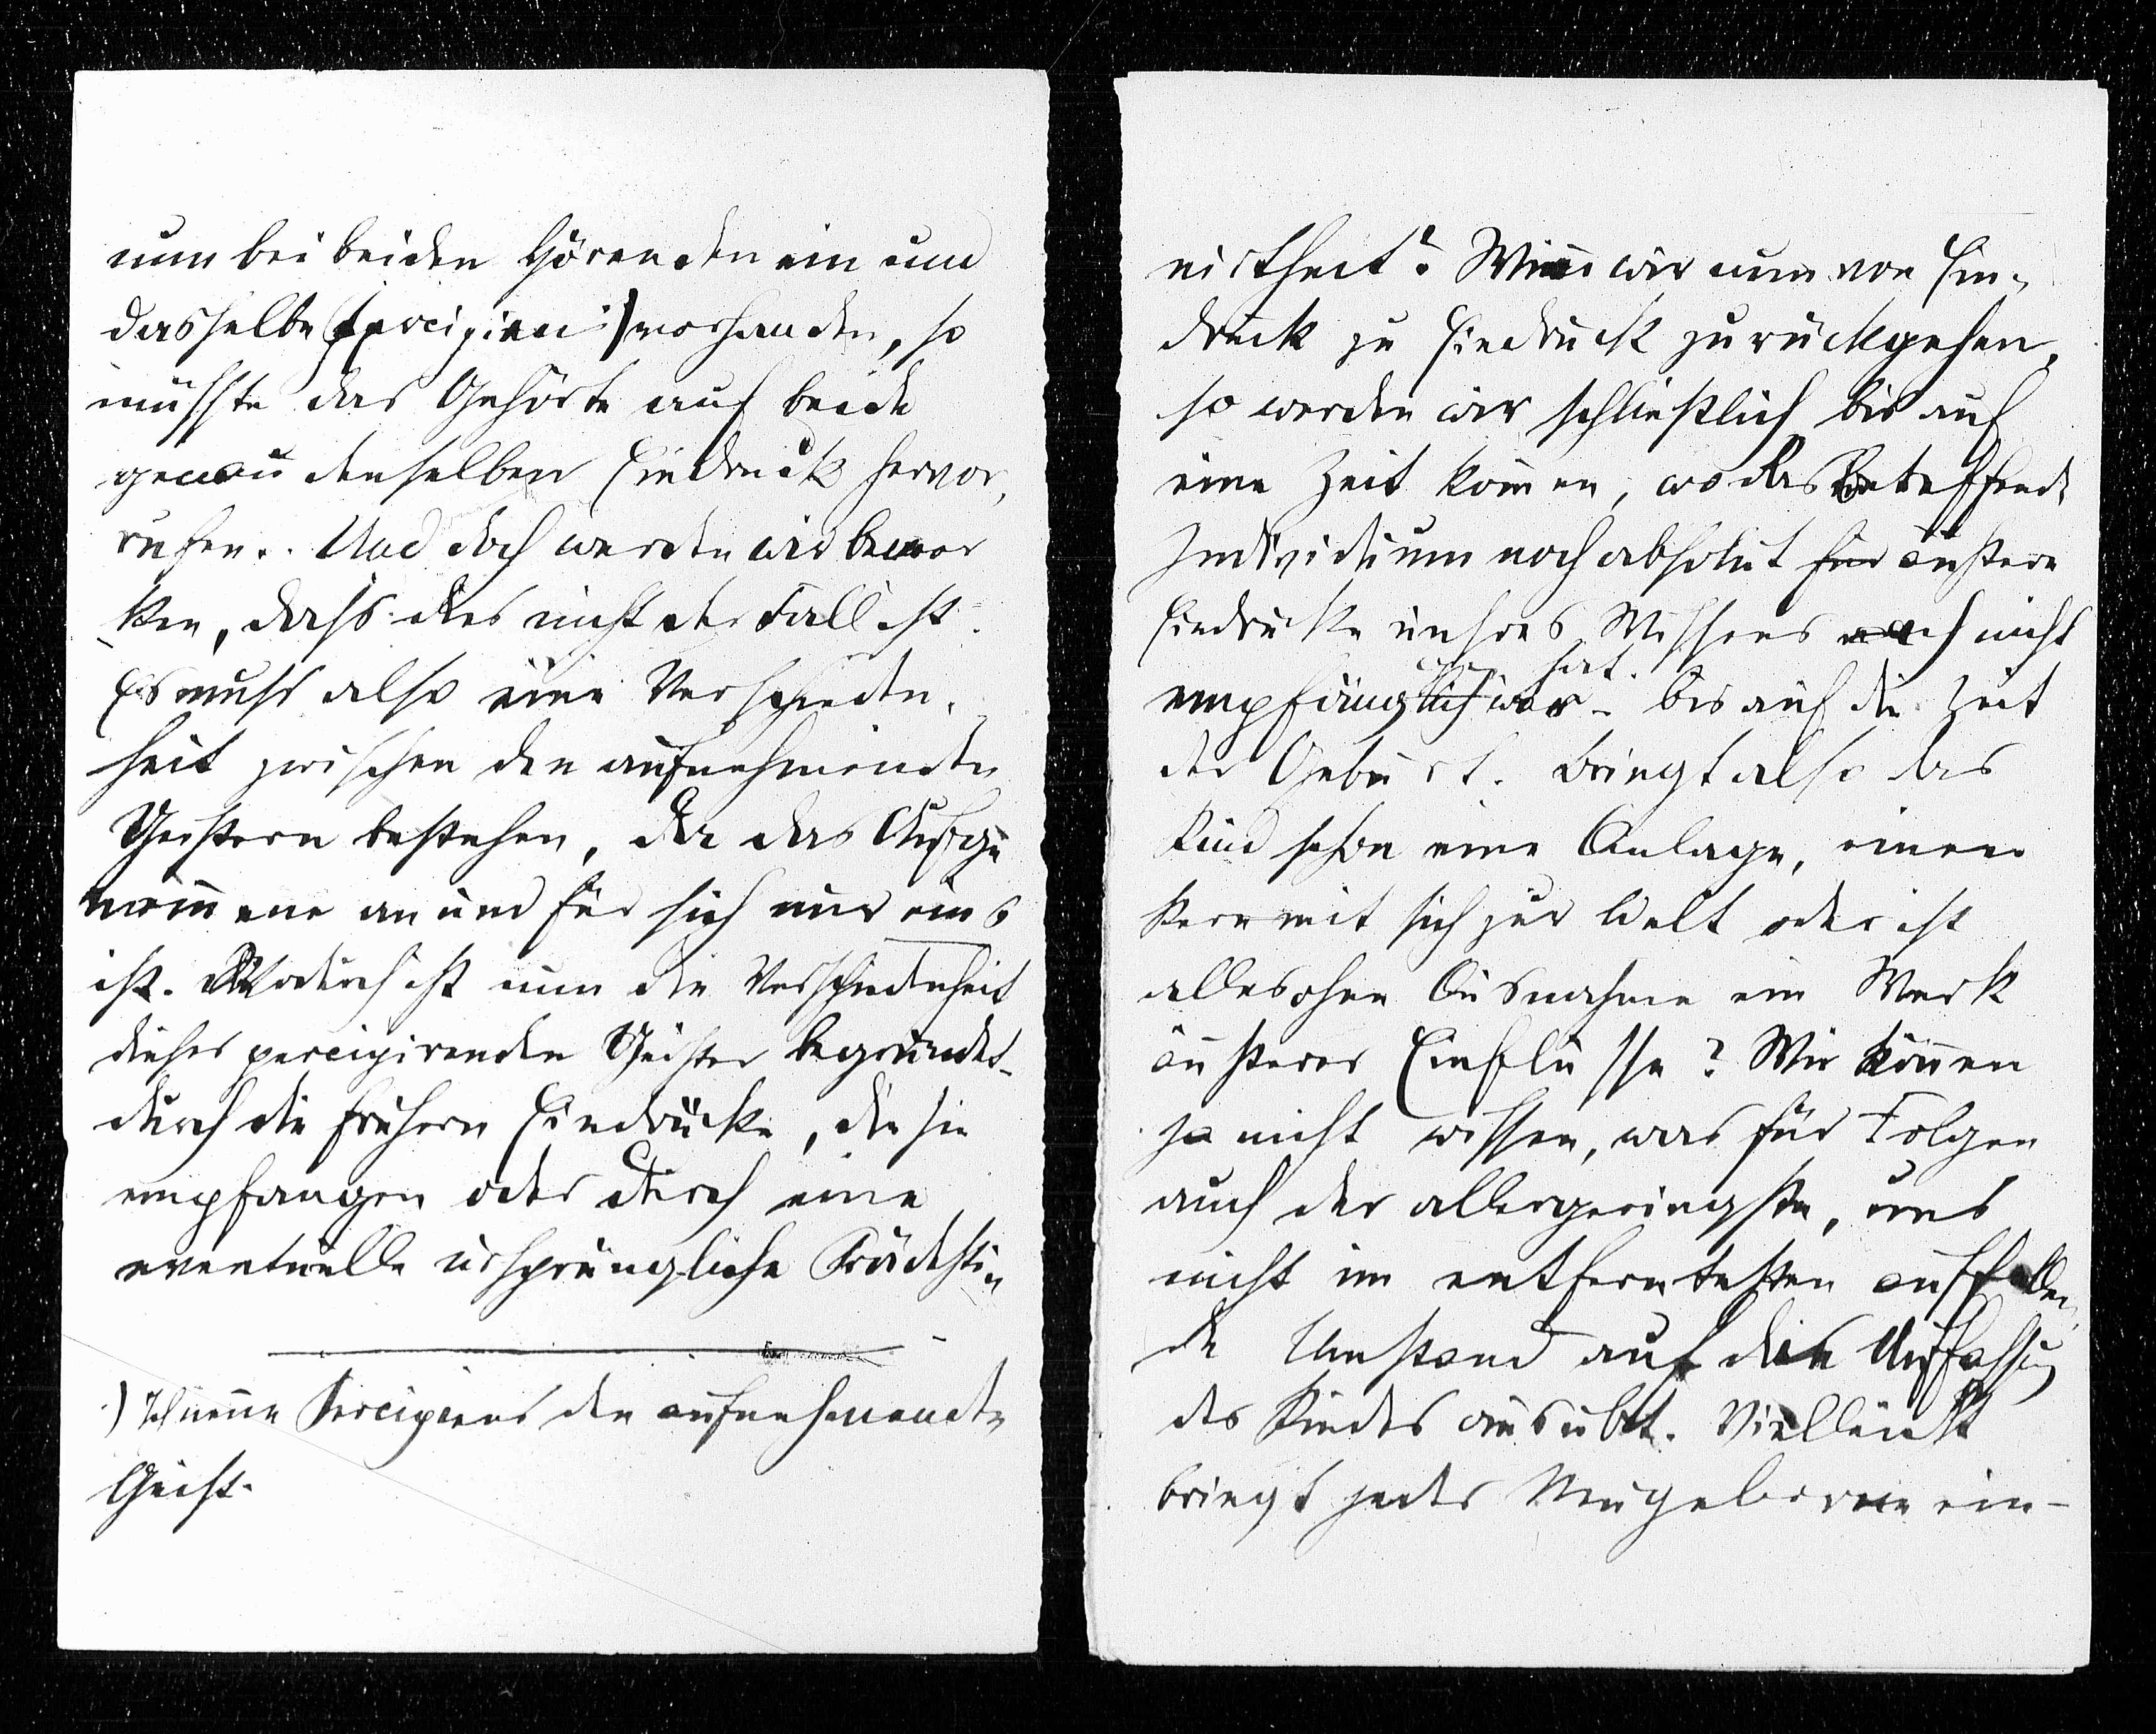 nun bei beiden Hörenden ein und
dasselbe (Percipiens·) vorhanden, so
müsste das Gehörte auf beide
genau denselben Eindruck hervor-
rufen. Und doch werden wir bemer-
ken, dass dies nicht der Fall ist.
Es muss also eine Verschieden-
heit zwischen den aufnehmenden
Geistern bestehen, da das Aufge-
nom̄ene an und für sich nur eins
ist. Wodurch ist nun die Verschiedenheit
dieser percipirenden Geister begründet –
durch die frühern Eindrücke, die sie
empfangen oder durch eine
eventuelle ursprüngliche Prädesti-
·) Ich nen̄e Percipiens den aufnehmenden
Geist.
nirtheit? Wen̄ wir nun von Ein-
druck zu Eindruck zurückgehen,
so werden wir schließlich bis auf
eine Zeit kom̄en, wo das betreffende
Individium noch absolut für äußere
Eindrücke unsres Wissens noch nicht
hat.
empfänglich war – bis auf die Zeit
der Geburt. Bringt also das
Kind schon eine Anlage, einen
Kern mit sich zur Welt oder ist
alles ohne Ausnahme ein Werk
äußerer Einflüsse? Wir kön̄en
ja nicht wissen, was für Folgen
auch der allergeringste, uns
nicht im entferntesten auffallen-
de Umstand auf die Auffassung
des Kindes ausübt. Vielleicht
bringt jeder Neugeborene ein-